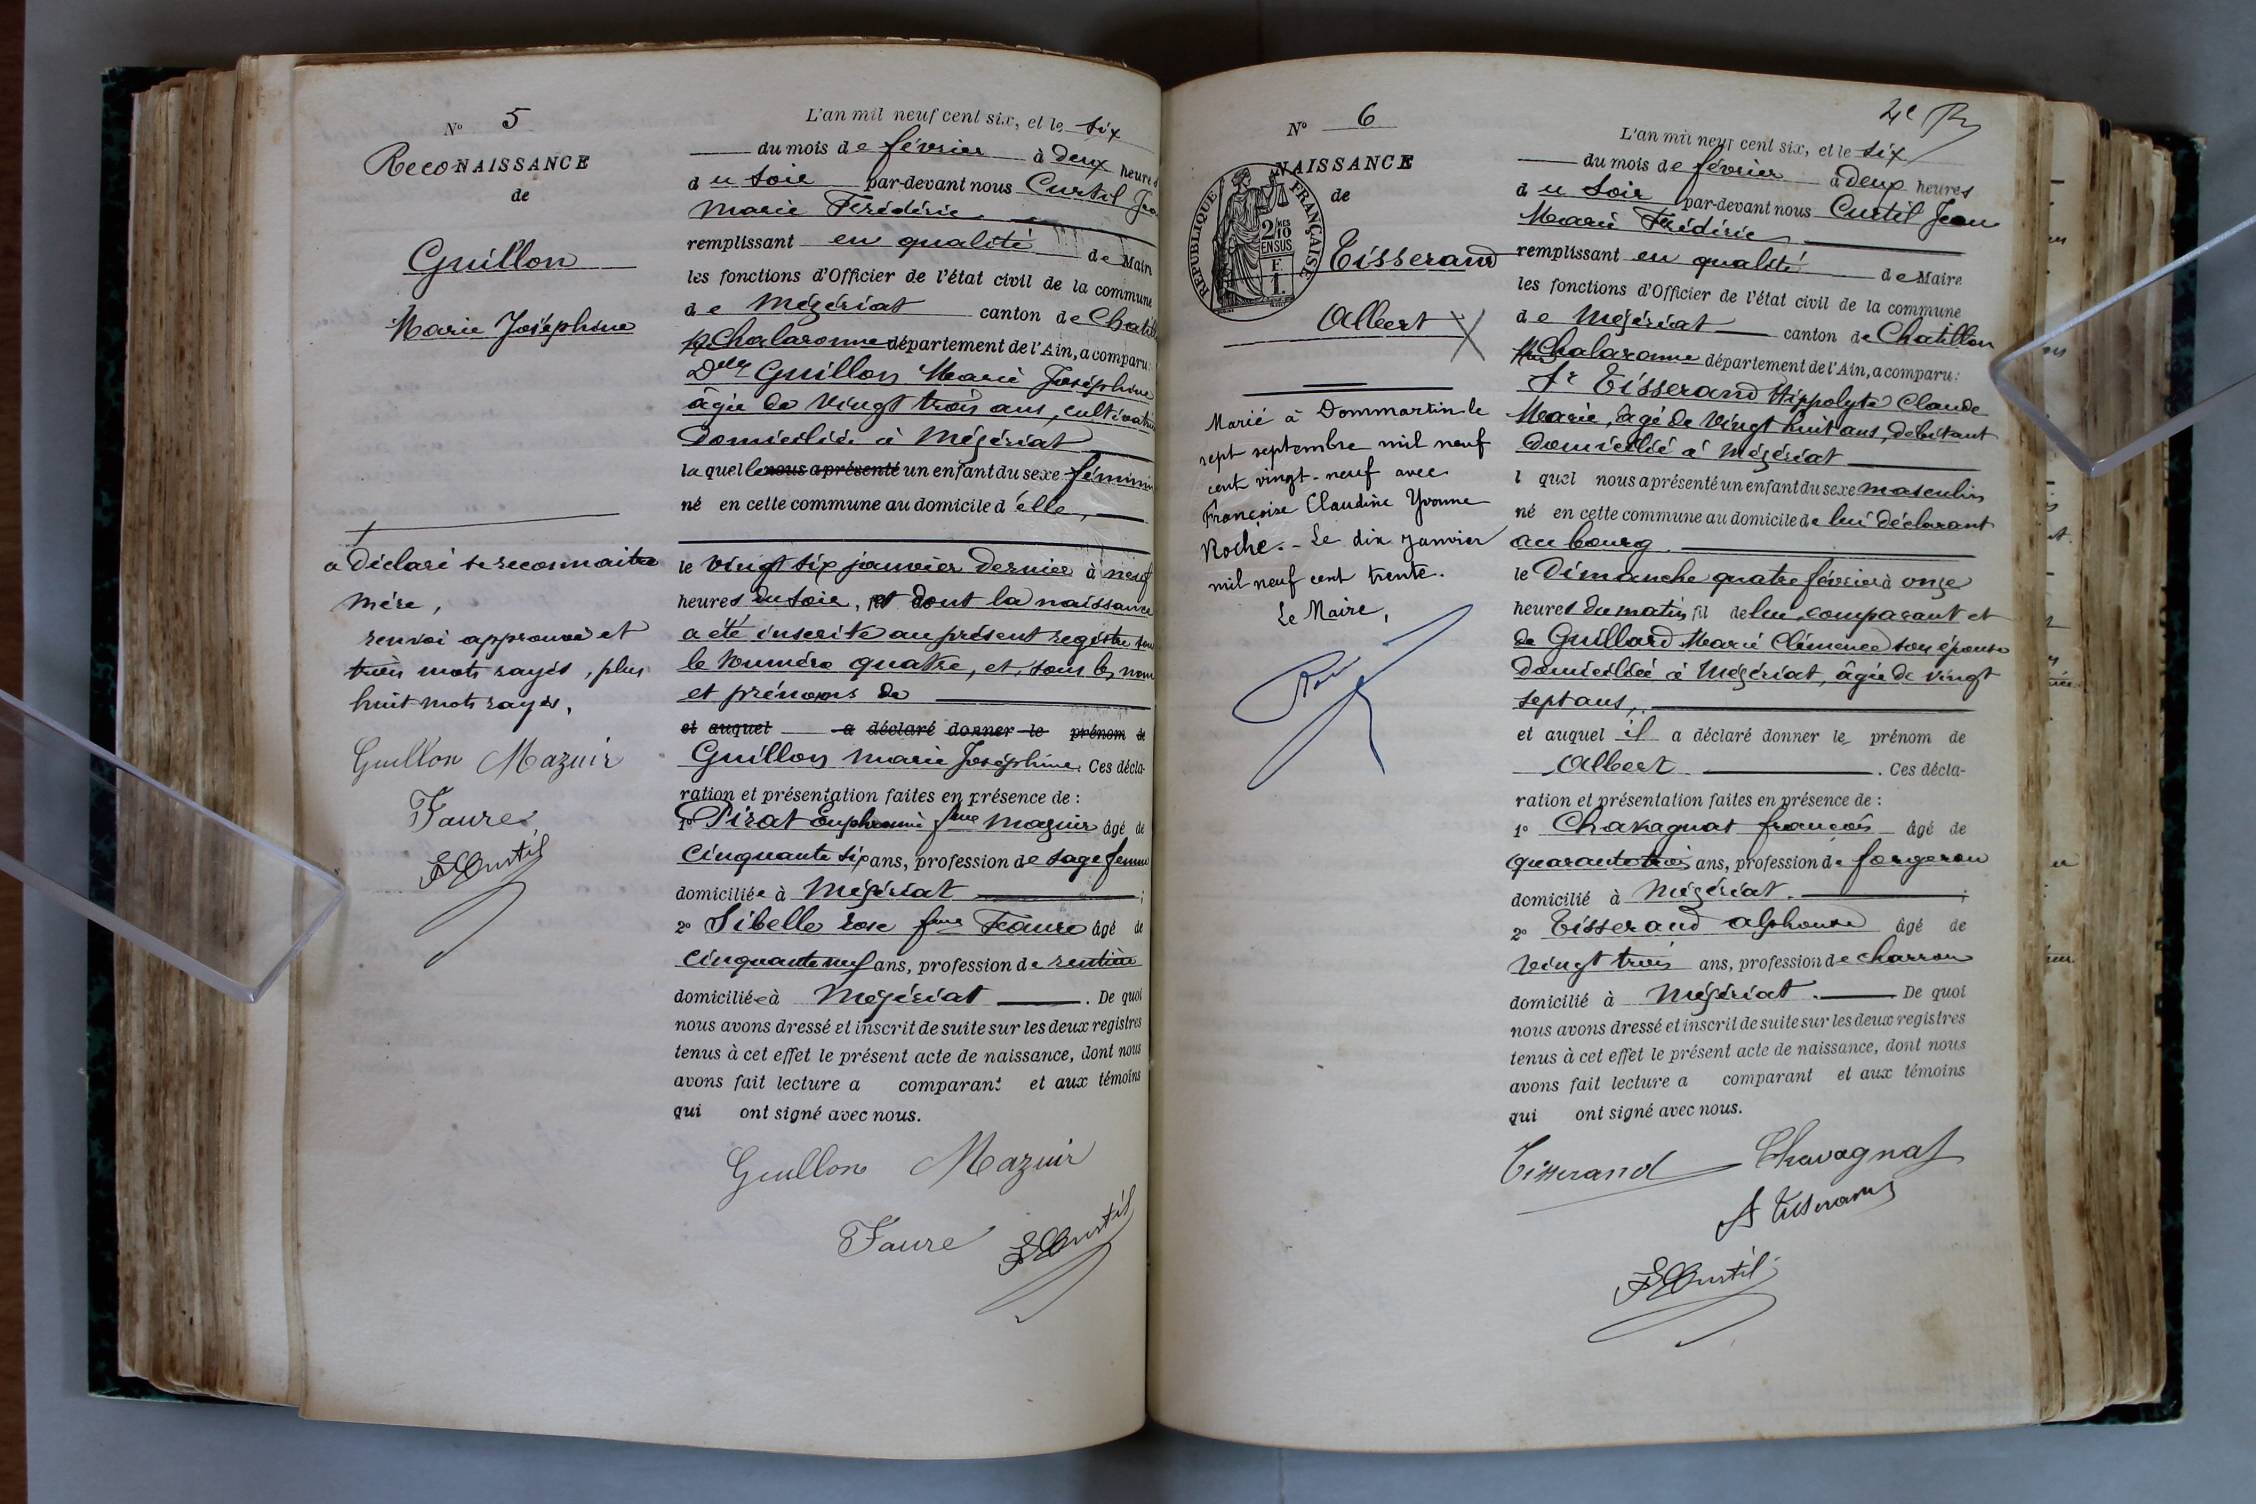 N° 5
RecoNAISSANCE
de
Guillon
Marie Joséphine
a déclaré se reconnaitre
mère,
renvoi approuvé et
trois mots rayés, plus
huit mots rayés,
Guillon Mazuir
Faure
Curtil
L'an mil neuf cent six, et le six
du mois de février à deux heures
du soir par-devant nous Curtil Jean
Marie Frédéric
remplissant en qualité de Maire
les fonctions d'Officier de l'état civil de la commune
de Mézériat canton de Chatillon
s/ Chalaronne département de l'Ain, a comparu:
Delle Guillon Marie Joséphine
âgée de vingt trois ans, cultivatrice
domiciliée à Mézériat
laquelle nous a présenté un enfant du sexe féminin
né en cette commune au domicile d'elle,
le vingt six janvier dernier à neuf
heures du soir, et dont la naissance
a été inscrite au présent registre sous
le numéro quatre, et, sous les nom
et prénoms de
et auquel a déclaré donner le prénom de
Guillon marie Joséphine. Ces décla-
ration et présentation faites en présence de :
1° Pirat Euphrasie fme Mazuir âgé de
Cinquante six ans, profession de sage femme
domiciliée à Mézériat ;
2° Sibelle rose fme Faure âgé de
Cinquante neuf ans, profession de rentière
domiciliée à Mézériat . De quoi
nous avons dressé et inscrit de suite sur les deux registres
tenus à cet effet le présent acte de naissance, dont nous
avons fait lecture a comparant et aux témoins
qui ont signé avec nous.
Guillon Mazuir
Faure Curtil
4e
N° 6
NAISSANCE
de
RÉPUBLIQUE FRANÇAISE
2/10mes
EN SUS
F.
1.
Tisserand
Albert
Marié à Dommartin le
sept septembre mil neuf
cent vingt-neuf avec
Françoise Claudine Yvonne
Roche. - Le dix janvier
mil neuf cent trente.
Le Maire,
L'an mil neuf cent six, et le six
du mois de février à deux heures
du soir par-devant nous Curtil Jean
Marie Frédéric
remplissant en qualité de Maire
les fonctions d'Officier de l'état civil de la commune
de Mézériat canton de Chatillon
s/ Chalaronne département de l'Ain, a comparu:
Sr Tisserand Hippolyte Claude
Marie, âgé de vingt huit ans, débitant
domicilié à Mézériat
l quel nous a présenté un enfant du sexe masculin
né en cette commune au domicile de lui déclarant
au bourg.
le Dimanche quatre février à onze
heures du matin fil de lui comparant et
de Guillard Marie Clémence son épouse
domiciliée à Mézériat, âgée de vingt
sept ans,
et auquel il a déclaré donner le prénom de
Albert . Ces décla-
ration et présentation faites en présence de :
1° Chavagnat françois âgé de
quarante trois ans, profession de forgeron
domicilié à Mézériat. ;
2° Tisserand alphonse âgé de
vingt trois ans, profession de charron
domicilié à Mézériat. De quoi
nous avons dressé et inscrit de suite sur les deux registres
tenus à cet effet le présent acte de naissance, dont nous
avons fait lecture a comparant et aux témoins
qui ont signé avec nous.
Tisserand Chavagnat
A Tisserand
Curtil